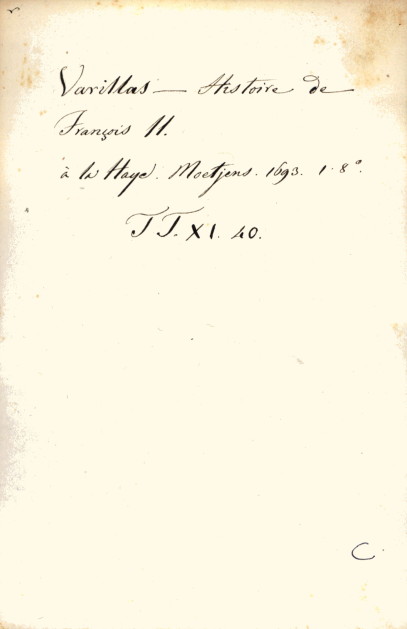 Varillas — Histoire de
François II.
à la Haye. Moetjens. 1693. 1. 8°.
TT. XI. 40.
C.